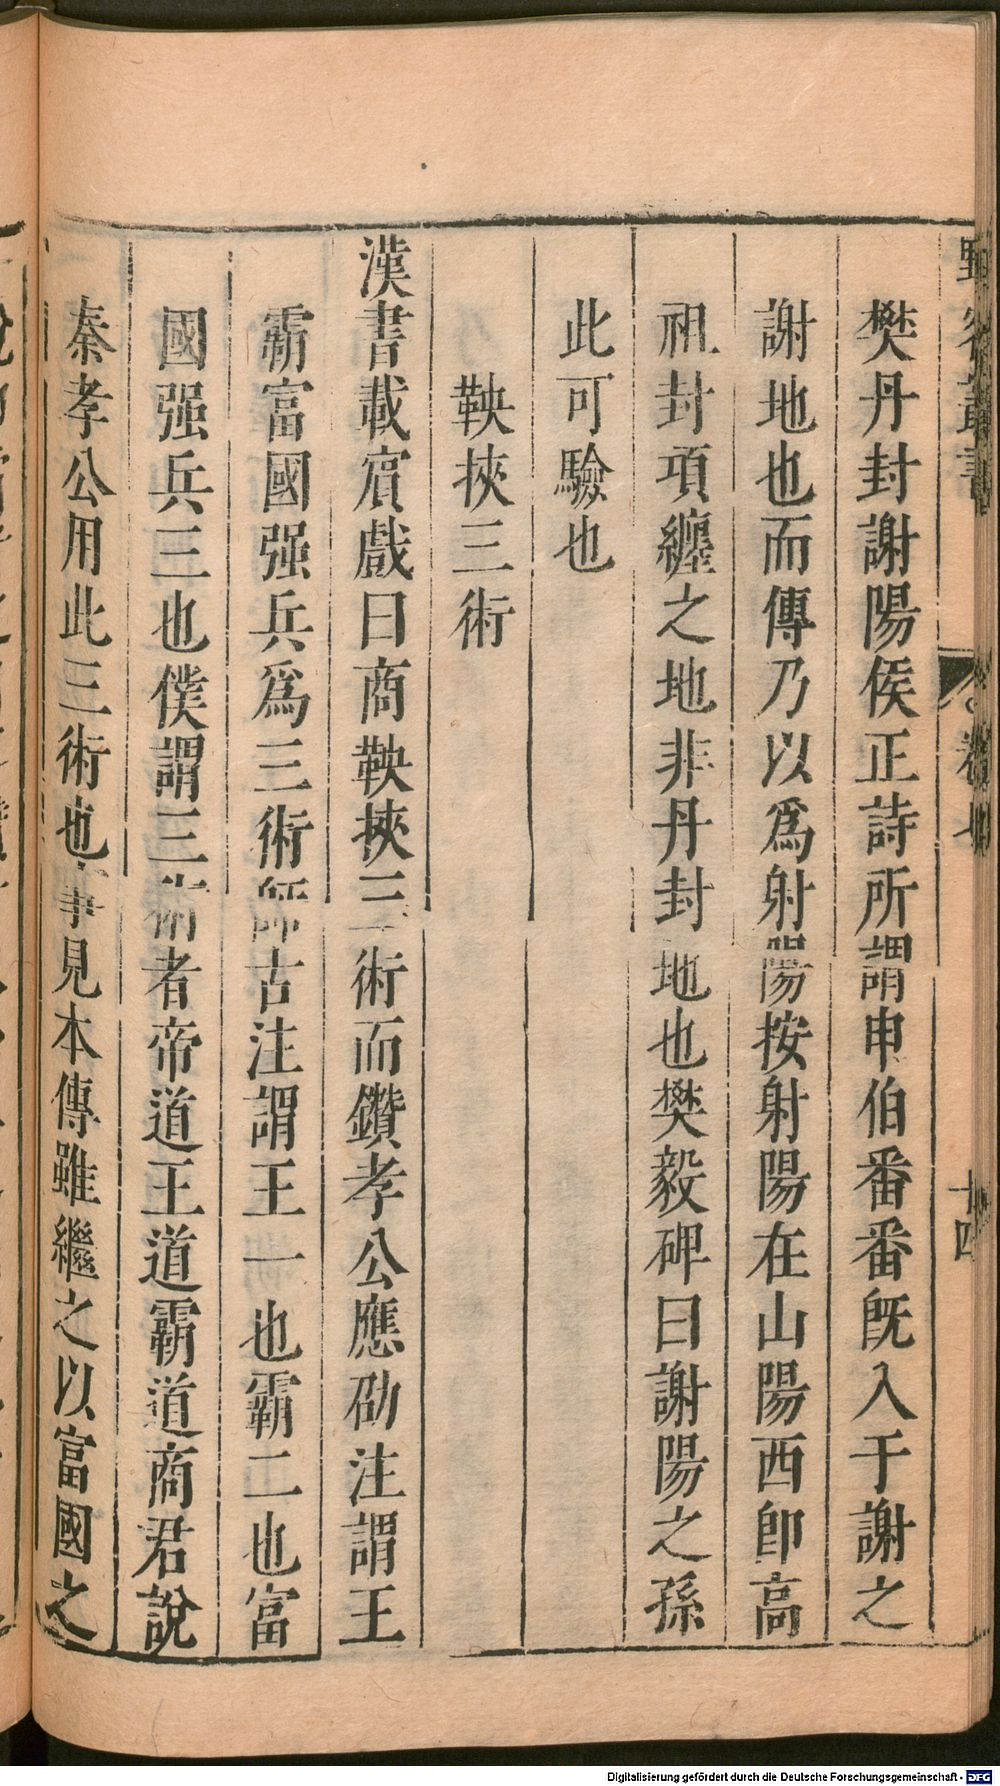 野客叢書 卷七 十四
樊丹封謝陽侯正詩所謂申伯番番旣入于謝之
謝地也而傳乃以爲射陽按射陽在山陽西卽高
祖封項纏之地非丹封地也樊毅碑曰謝陽之孫
此可驗也
鞅挾三術
漢書載賓戲曰商鞅挾三術而鑽孝公應劭注謂王
霸富國强兵爲三術師古注謂王一也霸二也富
國强兵三也僕謂三術者帝道王道霸道商君說
秦孝公用此三術也事見本傳雖繼之以富國之
Digitalisierung gefördert durch die Deutsche Forschungsgemeinschaft - DFG